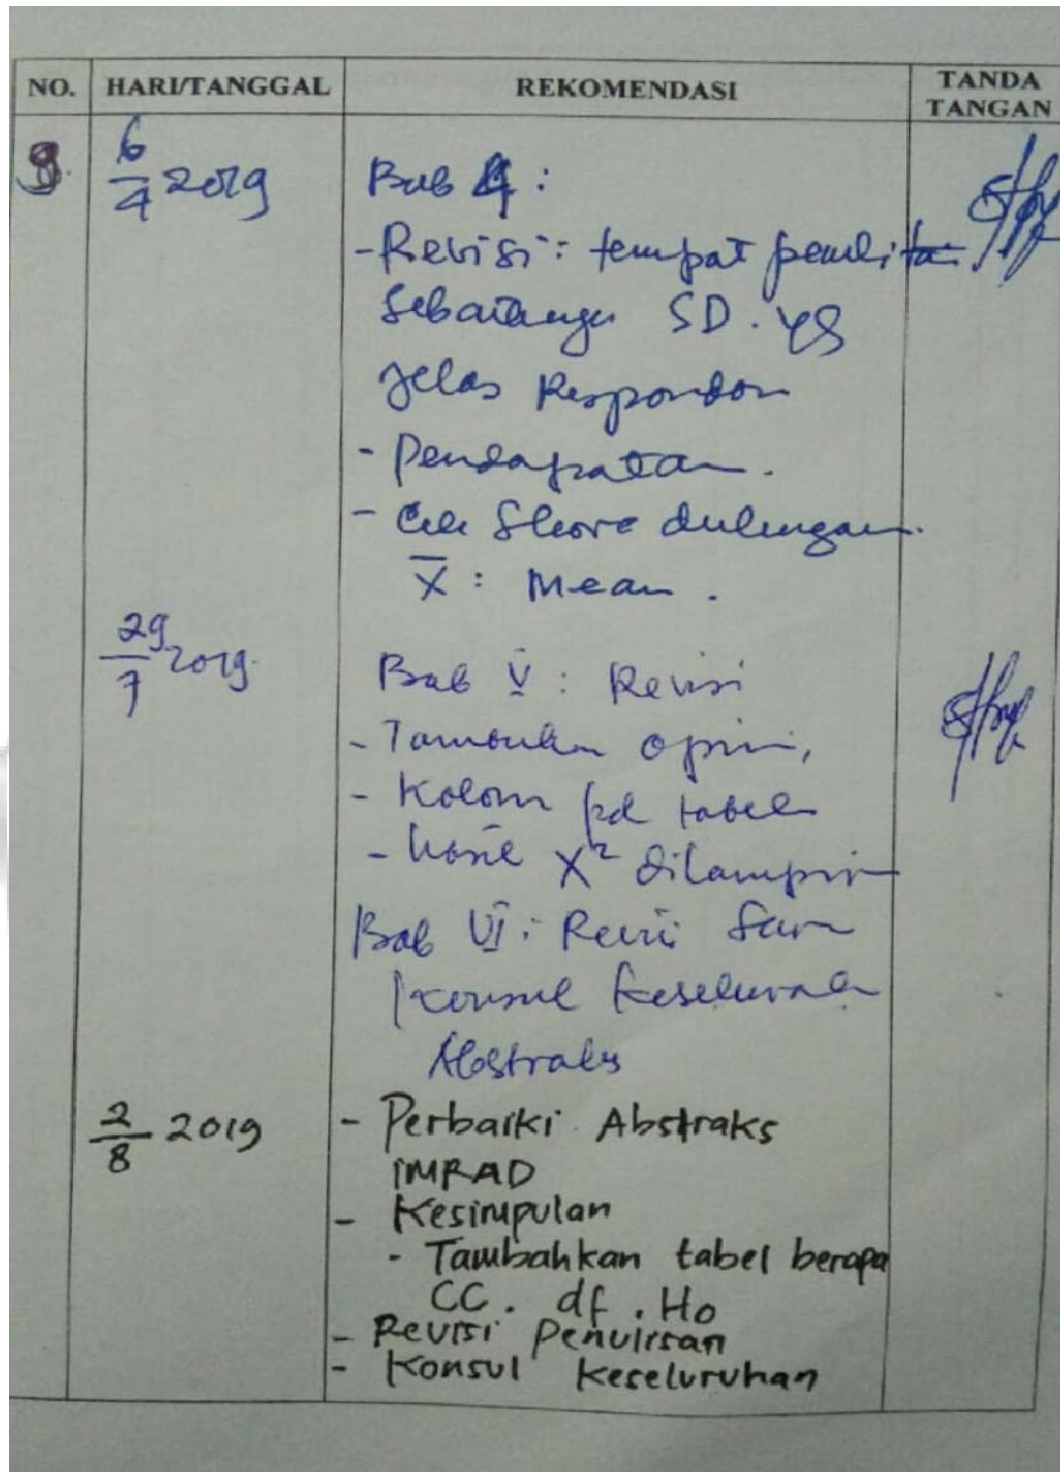 NO. HARI/TANGGAL REKOMENDASI TANDA TANGAN
6/4 2019 Bab 4 :
- Revisi : tempat penelitia
SD . yg
jelas Respondon
- Pendapatan .
- Cek Skore dukungan .
X̅ : Mean .
29/7 2019. Bab V : Revisi
- Tambahan opini,
- Kolom pd tabel
- hasil X² dilampirin
Bab VI : Revisi Saran
Konsul keseluruhan
Abstraks
2/8 2019 - Perbaiki Abstraks
IMRAD
- Kesimpulan
- Tambahkan tabel berapa
CC . df . Ho
- Revisi Penulisan
- Konsul keseluruhan